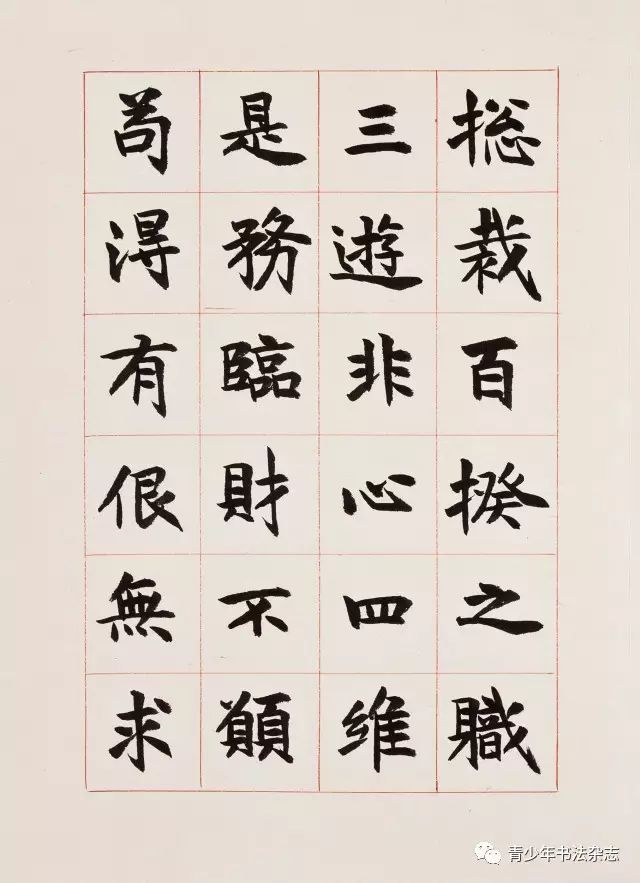 捴栽百揆之職
三遊非心四維
是務臨財不顧
苟得有佷無求
青少年书法杂志